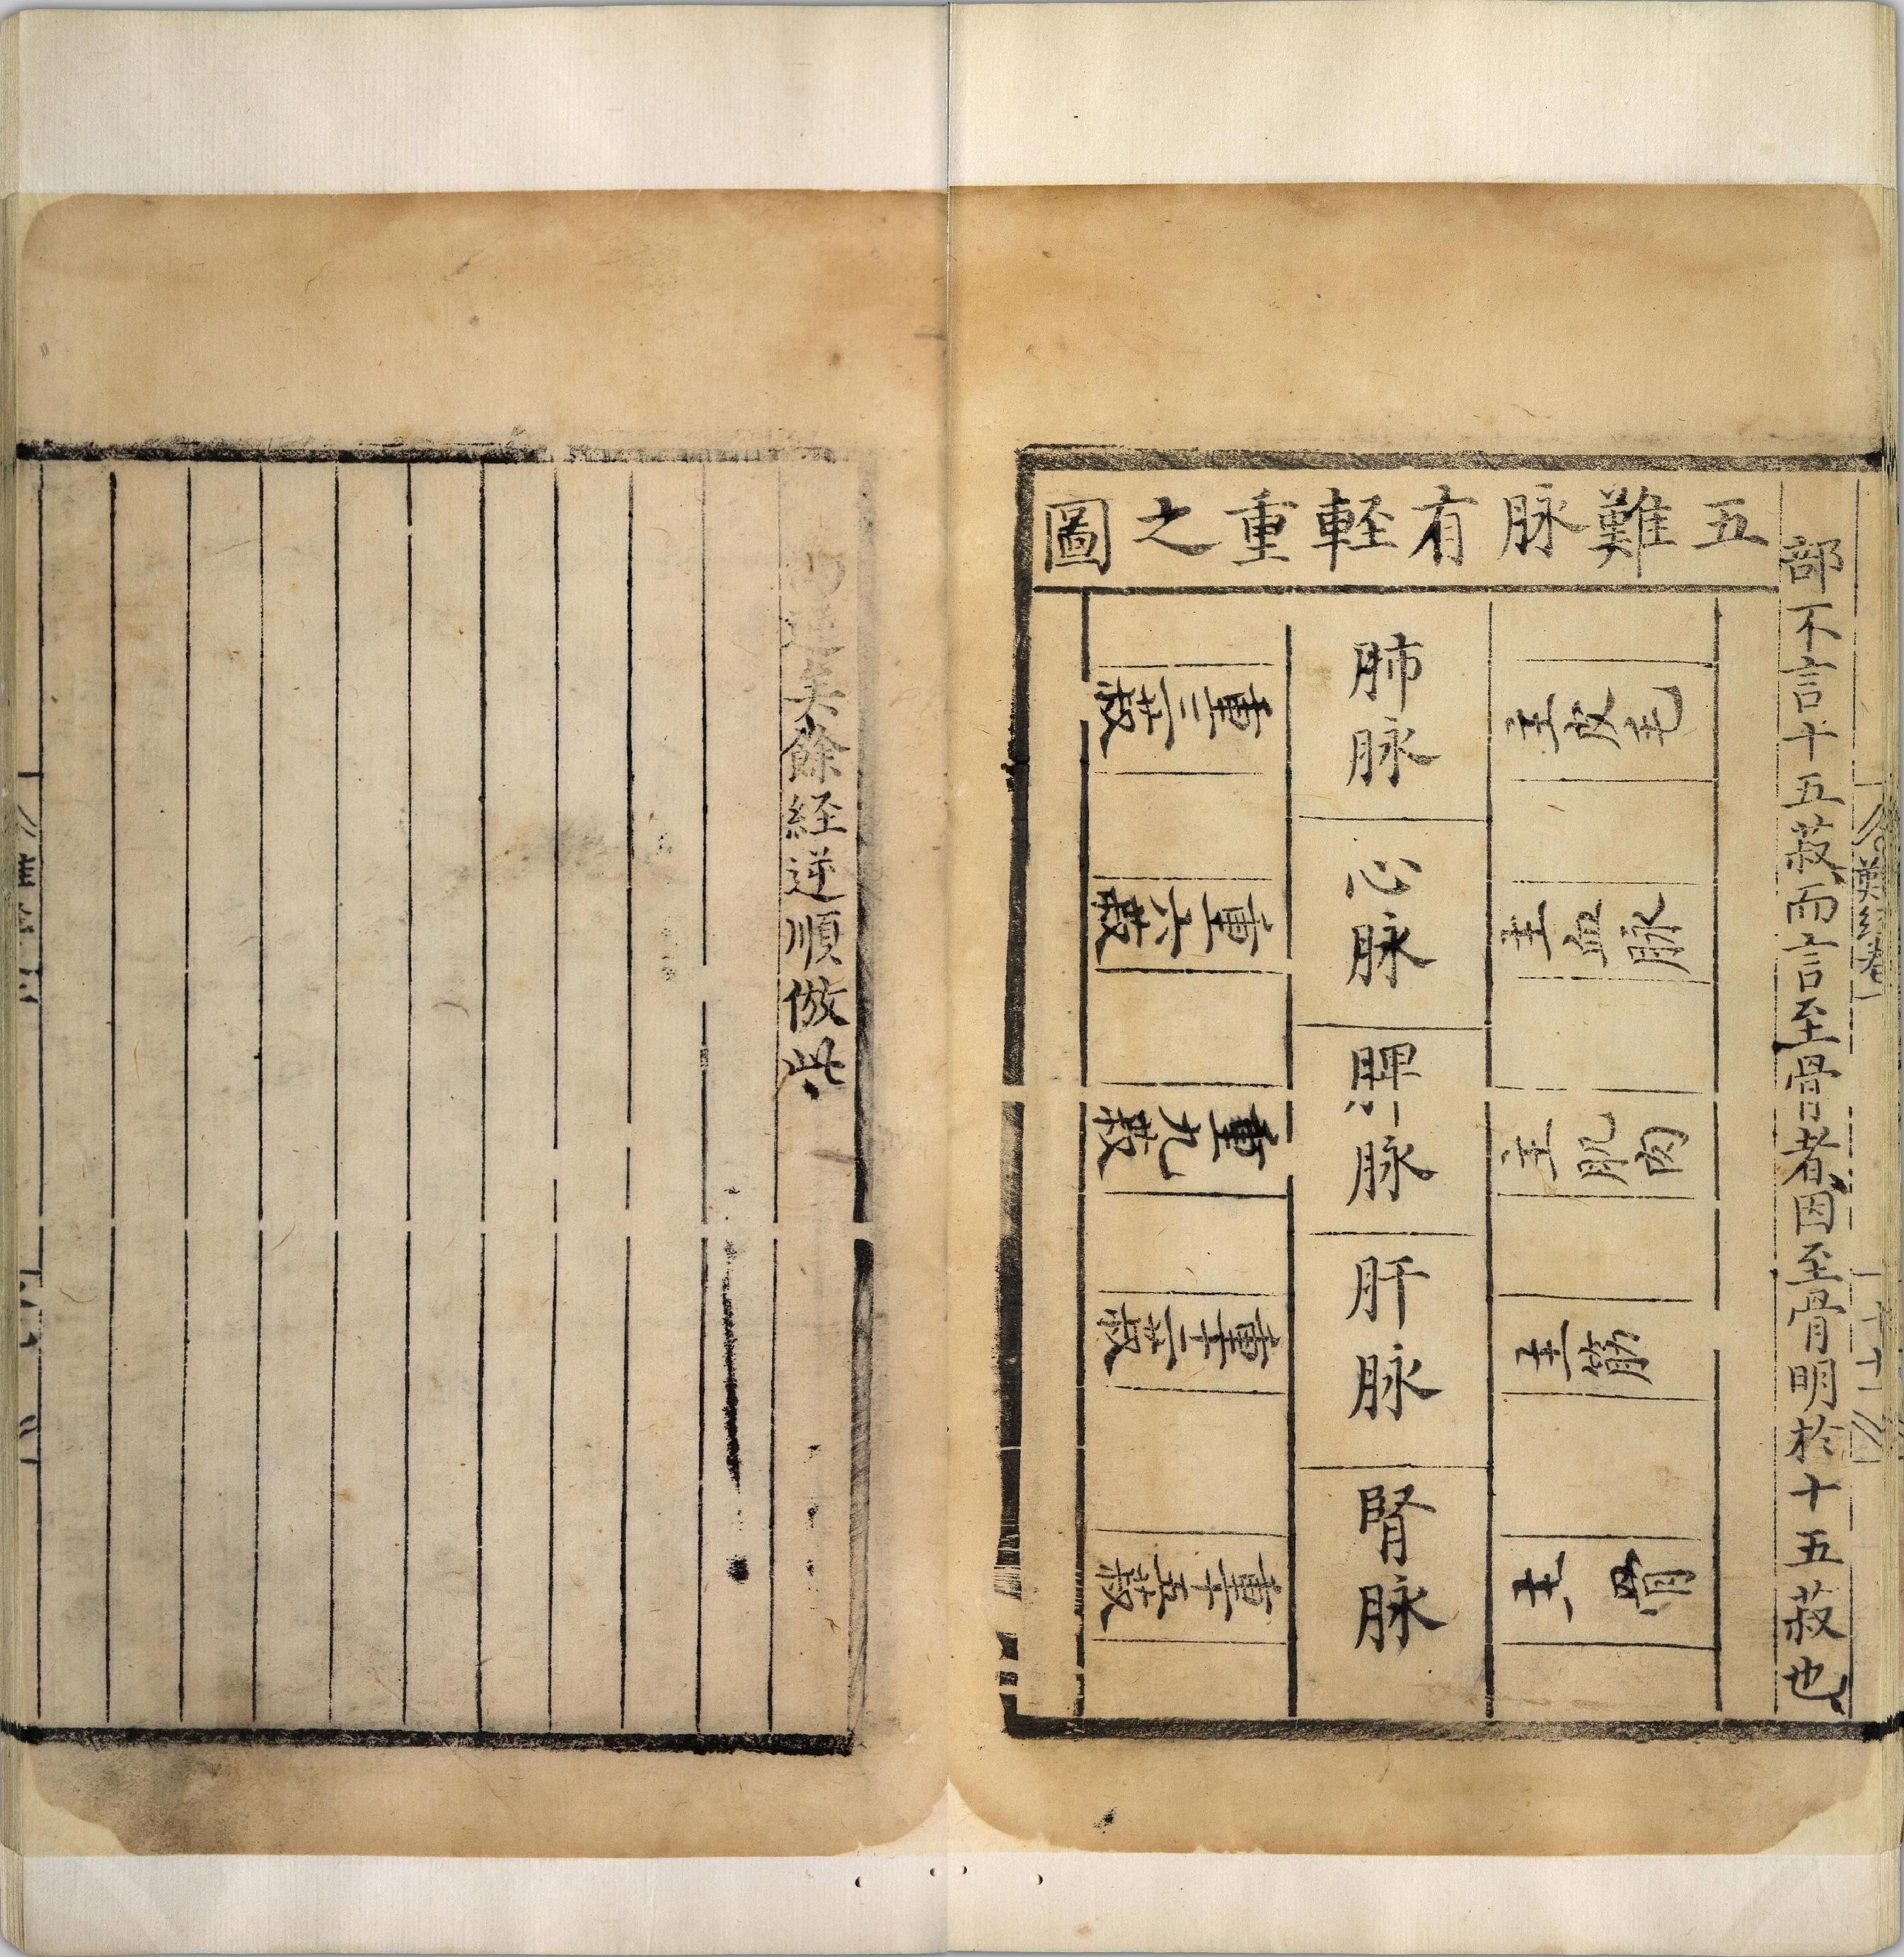 部不言十五菽而言至骨者因至骨明於十五菽也
五難脉有輊重之圖
主皮毛
肺脉
重三菽
主血脉
心脉
重六菽
主肌肉
脾脉
重九菽
主筋
肝脉
重十二菽
主骨
腎脉
重十五菽
矣餘経逆順倣此